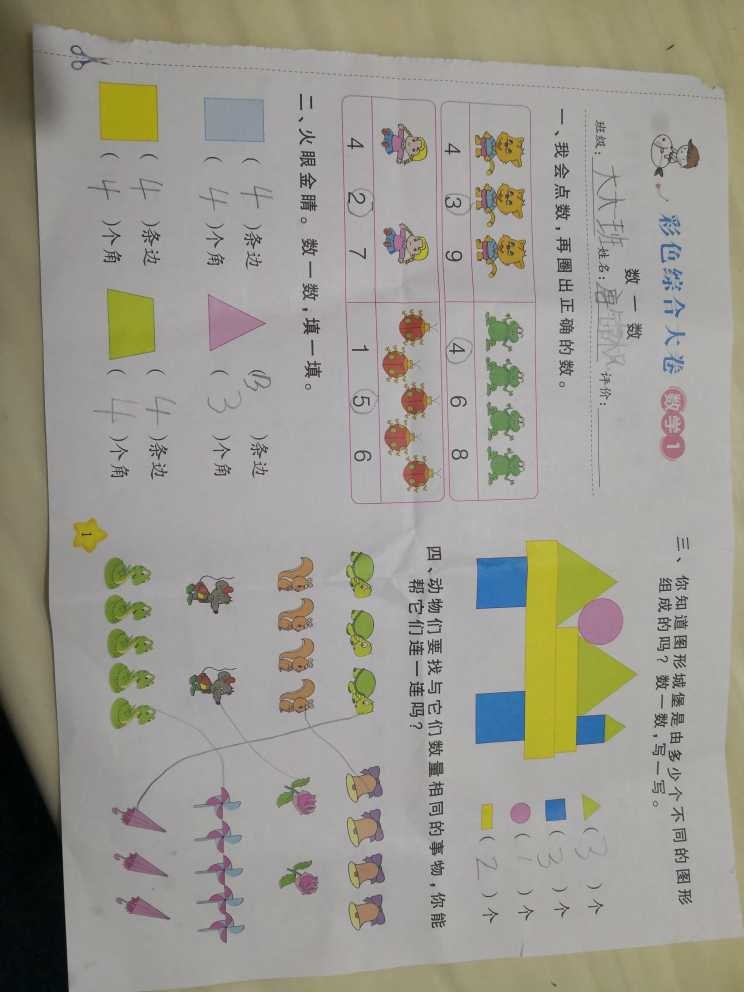 彩色综合大卷 数学1
数一数
班级：大大班 姓名：唐 评价：
一、我会点数，再圈出正确的数。
4 3 9 4 6 8
4 2 7 1 5 6
二、火眼金睛。数一数，填一填。
( 4 )条边 ( 3 )条边
( 4 )个角 ( 3 )个角
( 4 )条边 ( 4 )条边
( 4 )个角 ( 4 )个角
1
三、你知道图形城堡是由多少个不同的图形
组成的吗？数一数，写一写。
( 3 )个
( 3 )个
( 1 )个
( 2 )个
四、动物们要找与它们数量相同的事物，你能
帮它们连一连吗？